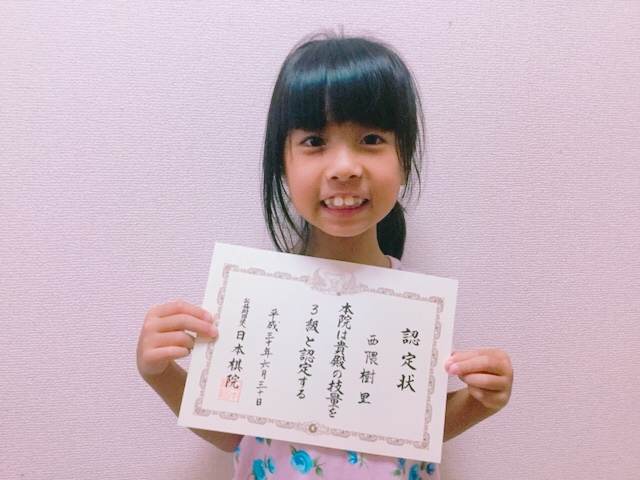 認定状
西隈樹里
本院は貴殿の技量を
3級と認定する
平成三十年六月三十日
公益財団法人 日本棋院